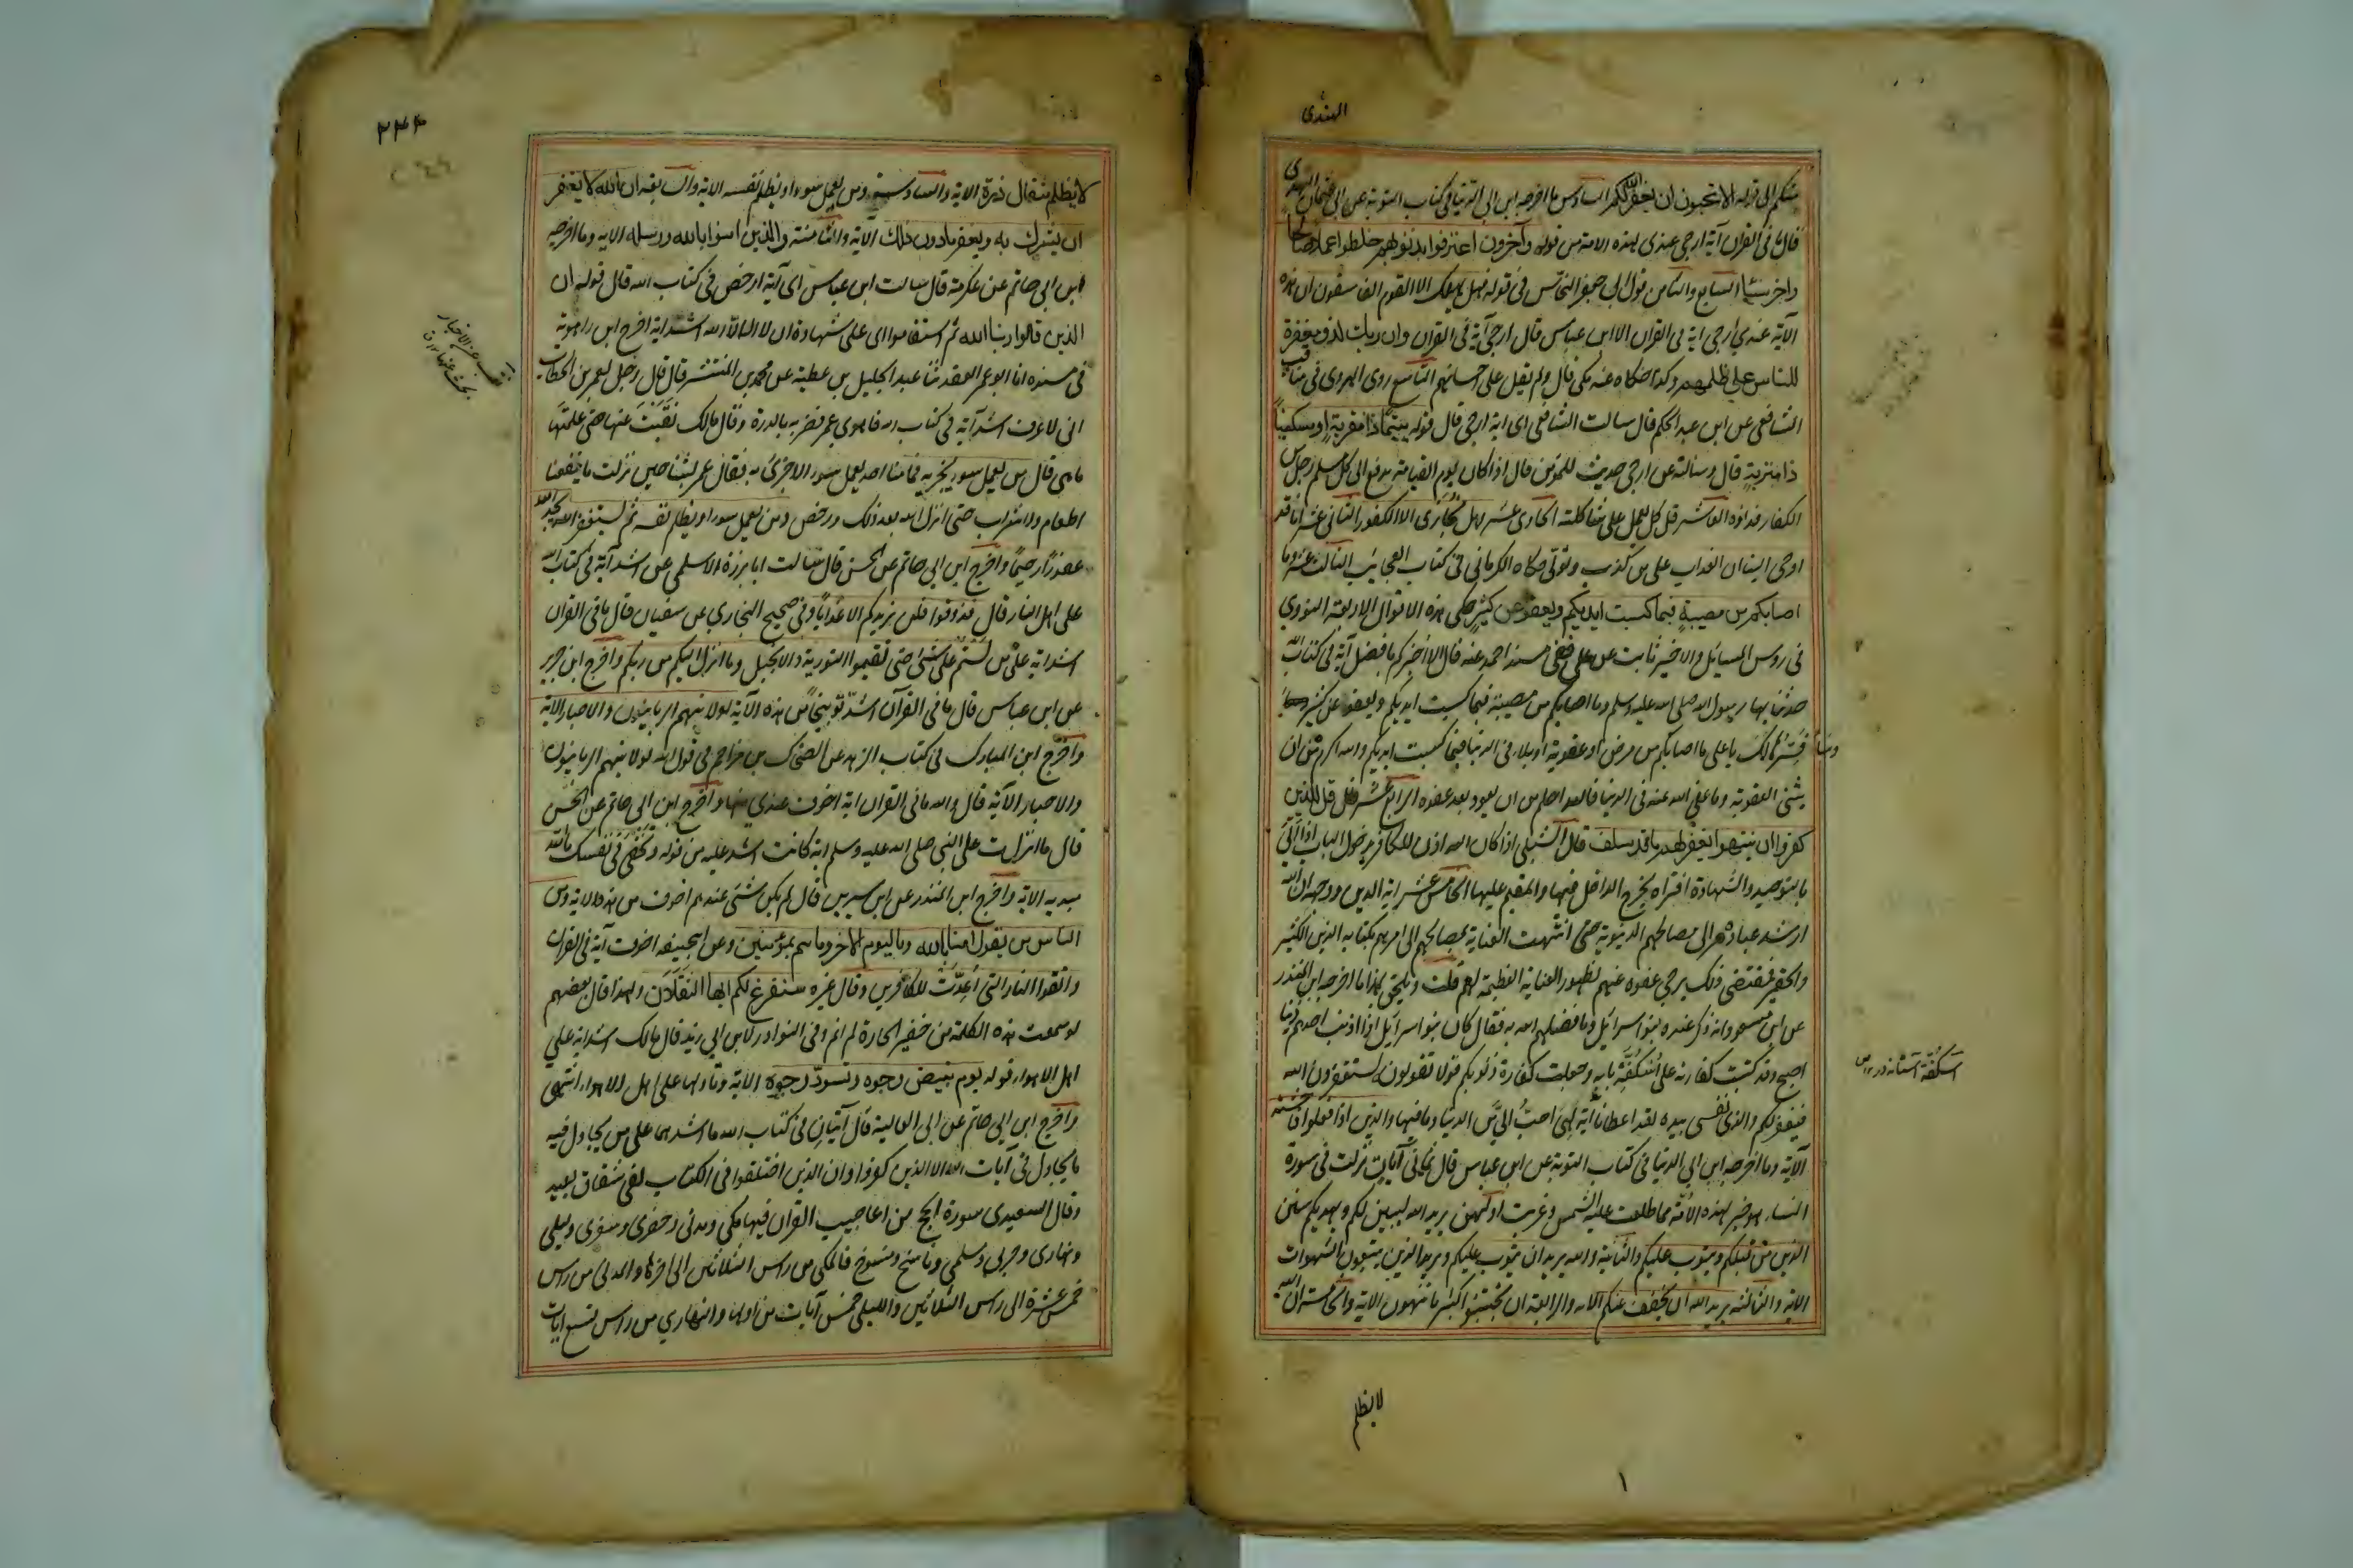 النهدی
منکم الی قوله الا تحبون ان یغفر الله لکم السادس ما اخرجه ابن ابی الدنیا فی کتاب التوبة عن ابی عثمان النهدی
قال ما فی القران آیة ارجی عندی لهذه الامة من قوله وآخرون اعترفوا بذنوبهم خلطوا عملا صالحا
واخر سیئا السابع والثامن قول ابی جعفر النحاس فی قوله فهل یهلک الا القوم الفاسقون ان هذه
الآیة عندی ارجی ایة فی القران الا ان ابن عباس قال ارجی آیة فی القران وان ربک لذو مغفرة
للناس علی ظلمهم وکذا حکاه عنه مکی قال ولم یقل علی احسانهم التاسع روی الهروی فی مناقب
الشافعی عن ابن عبد الحکم قال سالت الشافعی ای ایة ارجی قال قوله یتیما ذا مقربة او مسکینا
ذا متربة قال وسالته عن ارجی حدیث للمؤمن قال اذا کان یوم القیامة یدفع الی کل مسلم رجل من
الکفار فداؤه العاشر قل کل یعمل علی شاکلته الحادی عشر وهل نجازی الا الکفور الثانی عشر انا قد
اوحی الینا ان العذاب علی من کذب وتولی حکاه الکرمانی فی کتاب العجایب الثالث عشر وما
اصابکم من مصیبة فبما کسبت ایدیکم ویعفو عن کثیر حکی هذه الاقوال الاربعة النووی
فی روس المسائل والاخیر ثابت عن علی ففی مسند احمد عنه قال الا اخبرکم بافضل آیة فی کتاب الله
حدثنا بها رسول الله صلی الله علیه وسلم وما اصابکم من مصیبة فبما کسبت ایدیکم ویعفو عن کثیر
وسافسرها لک یا علی ما اصابکم من مرض او عقوبة او بلاء فی الدنیا فبما کسبت ایدیکم والله اکرم من ان
یثنی العقوبة وما عفی الله عنه فی الدنیا فالله احلم من ان یعود بعد عفوه الرابع عشر قل للذین
کفروا ان ینتهوا یغفر لهم ما قد سلف قال الشبلی اذا کان الله اذن للکافر بدخول الباب اذا اتی
بالتوحید والشهادة افتراه یخرج الداخل فیها والمقیم علیها الخامس عشر ایة الدین ووجهه ان الله
ارشد عباده الی مصالحهم الدنیویة حتی انتهت العنایة بمصالحهم الی امرهم بکتابة الدین الکثیر
والحقیر فمقتضی ذلک یرجی عفوه عنهم لظهور العنایة العظیمة بهم قلت ویلحق بهذا ما اخرجه ابن المنذر
عن ابن مسعود انه ذکر عنده بنو اسرائیل وما فضلهم الله به فقال کان بنو اسرائیل اذا اذنب احدهم ذنبا
اصبح وقد کتبت کفارته علی اسکفة بابه وجعلت کفارة ذنوبکم قولا تقولونه تستغفرون الله
فیغفر لکم والذی نفسی بیده لقد اعطانا آیة لهی احب الی من الدنیا وما فیها والذین اذا فعلوا فاحشة
الآیة وما اخرجه ابن ابی الدنیا فی کتاب التوبة عن ابن عباس قال ثمانی آیات نزلت فی سورة
النساء هو خیر لهذه الامة مما طلعت علیه الشمس وغربت اولهن یرید الله لیبین لکم ویهدیکم سنن
الذین من قبلکم ویتوب علیکم والثانیة والله یرید ان یتوب علیکم ویرید الذین یتبعون الشهوات
الایة والثالثة یرید الله ان یخفف عنکم الایة والرابعة ان تجتنبوا کبائر ما تنهون الآیة والخامسة ان الله
اسکفة آستانه در
لا یظلم
۱
۳۴۴
لا یظلم مثقال ذرة الایة والسادسة ومن یعمل سوءا او یظلم نفسه الایة والسابعة ان الله لا یغفر
ان یشرک به ویغفر ما دون ذلک الآیة والثامنة والذین امنوا بالله ورسله الایة وما اخرجه
ابن ابی حاتم عن عکرمة قال سالت ابن عباس ای آیة ارخص فی کتاب الله قال قوله ان
الذین قالوا ربنا الله ثم استقاموا ای علی شهادة ان لا اله الا الله اشد ایة اخرج ابن راهویة
فی مسنده انا ابو عمر العقدی ثنا عبد الجلیل بن عطیة عن محمد بن المنتشر قال قال رجل لعمر بن الخطاب
انی لاعرف اشد آیة فی کتاب الله فاهوی عمر فضربه بالدرة وقال مالک نقبت عنها حتی علمتها
ما هی قال من یعمل سوء یجز به فما منا احد یعمل سوء الا جزی به فقال عمر لبثنا حین نزلت ما ینفعنا
اطعام ولا شراب حتی انزل الله بعد ذلک ورخص ومن یعمل سوءا او یظلم نفسه ثم یستغفر الله یجد الله
غفورا رحیما واخرج ابن ابی حاتم عن الحسن قال سالت ابا برزة الاسلمی عن اشد آیة فی کتاب الله
علی اهل النار قال فذوقوا فلن نزیدکم الا عذابا وفی صحیح البخاری عن سفیان قال ما فی القران
اشد ایة علی من لستم علی شیٔ حتی تقیموا التوریة والانجیل وما انزل الیکم من ربکم واخرج ابن جریر
عن ابن عباس قال ما فی القرآن اشد توبیخا من هذه الآیة لولا ینهیهم الربانیون والاحبار الآیة
واخرج ابن المبارک فی کتاب الزهد عن الضحاک بن مزاحم فی قول الله لولا ینهیهم الربانیون
والاحبار الآیة قال والله ما فی القران ایة اخوف عندی منها واخرج ابن ابی حاتم عن الحسن
قال ما انزلت علی النبی صلی الله علیه وسلم ایة کانت اشد علیه من قوله وتخفی فی نفسک ما الله
مبدیه الایة واخرج ابن المنذر عن ابن سیرین قال لم یکن شئی عندهم اخوف من هذه الایة ومن
الناس من یقول امنا بالله وبالیوم الاخر وما هم بمؤمنین وعن ابیحنیفه اخوف آیة فی القران
واتقوا النار التی اعدت للکافرین وقال غیره سنفرغ لکم ایها الثقلان ولهذا قال بعضهم
لو سمعت هذه الکلمة من خفیر الحارة لم انم وفی النوادر لابن ابی زید قال مالک اشد ایة علی
اهل الاهواء قوله یوم تبیض وجوه وتسود وجوه الآیة وتاولها علی اهل الاهواء انتهی
واخرج ابن ابی حاتم عن ابی العالیة قال آیتان فی کتاب الله ما اشدهما علی من یجادل فیه
ما یجادل فی آیات الله الا الذین کفروا وان الذین اختلفوا فی الکتاب لفی شقاق بعید
وقال السعیدی سورة الحج من اعاجیب القران فیها مکی ومدنی وحضری وسفری ولیلی
ونهاری وحربی وسلمی وناسخ ومنسوخ فالمکی من راس الثلاثین الی اخرها والمدنی من راس
خمس عشرة الی راس الثلاثین واللیلی خمس آیات من اولها والنهاری من راس تسع ایات